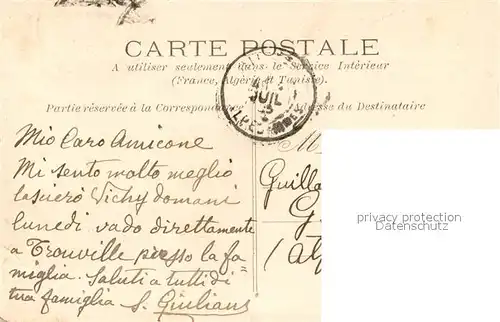 CARTE POSTALE
A utiliser seulement dans le Service Intérieur
(France, Algérie et Tunisie).
Partie réservée à la Correspondance
Adresse du Destinataire
JUIL
Mio Caro Amicone
Mi sento molto meglio
lascierò Vichy domani
lunedi vado direttamente
a Trouville presso la fa=
miglia. Saluti a tutti di
tua famiglia S. Giuliani
M
Guilla
G
(Alp
privacy protection
Datenschutz